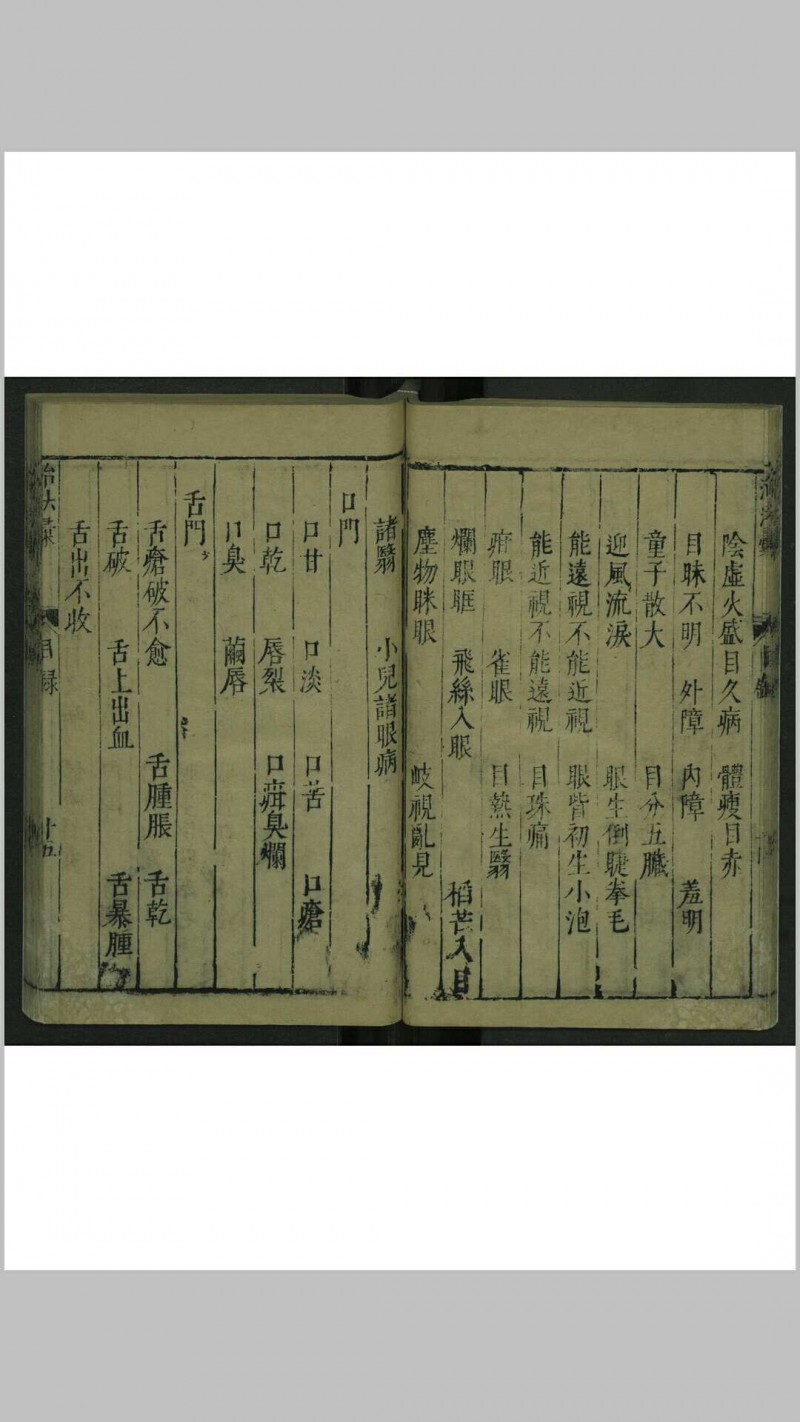 陰虛火盛目久病　體瘦目赤
目昧不明　外障　內障　羞明
童子散大　目分五臟
迎風流淚　眼生倒睫拳毛
能遠視不能近視　眼眥初生小泡
能近視不能遠視　目珠痛
疳眼　雀眼　目熱生翳
爛眼眶　飛絲入眼　稻芒入目
塵物眯眼　岐視亂見
諸翳　小兒諸眼病
口門
口甘　口淡　口苦　口瘡
口乾　唇裂　口疳臭爛
口臭　繭唇
舌門
舌瘡破不愈　舌腫脹　舌乾
舌破　舌上出血　舌暴腫
舌出不收
目録